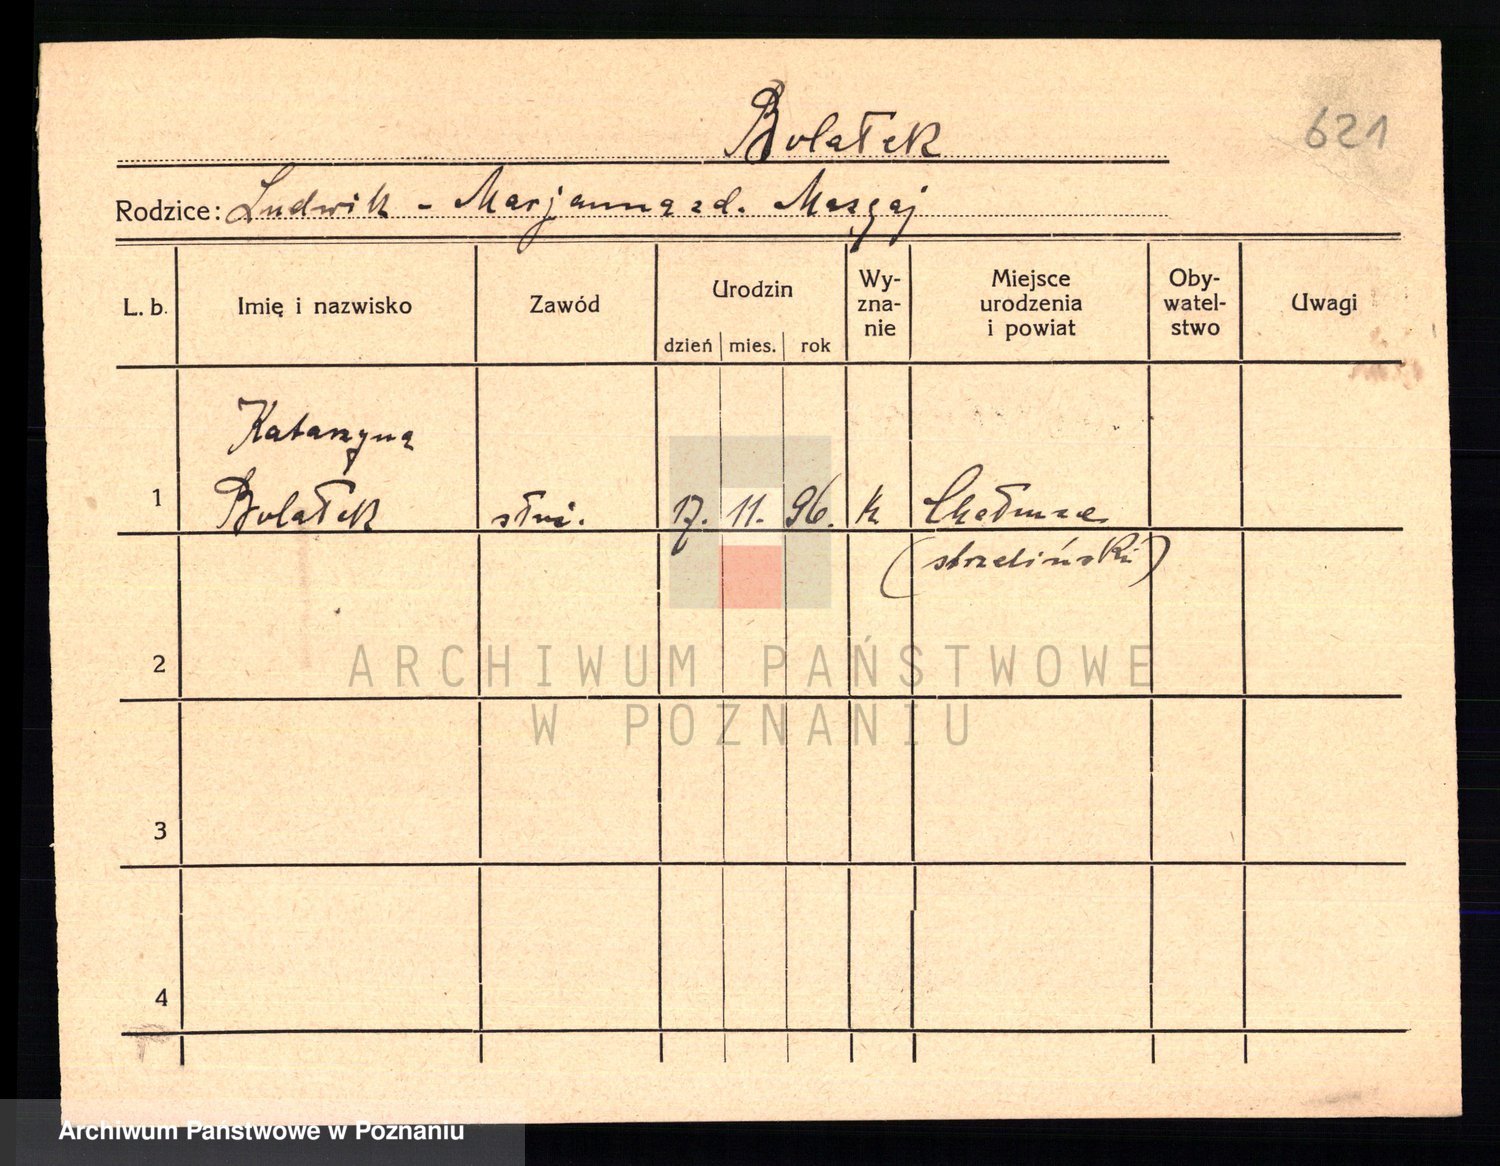 Bolałek
621
Rodzice: Ludwik - Marjanna zd. Maszaj
L. b.
Imię i nazwisko
Zawód
Urodzin
dzień
mies.
rok
Wy-
zna-
nie
Miejsce
urodzenia
i powiat
Oby-
watel-
stwo
Uwagi
Katarzyna
1
Bolałek
służ.
17.
11.
96.
K
Chełmce
(strzeliński)
2
ARCHIWUM PAŃSTWOWE
W POZNANIU
3
4
Archiwum Państwowe w Poznaniu